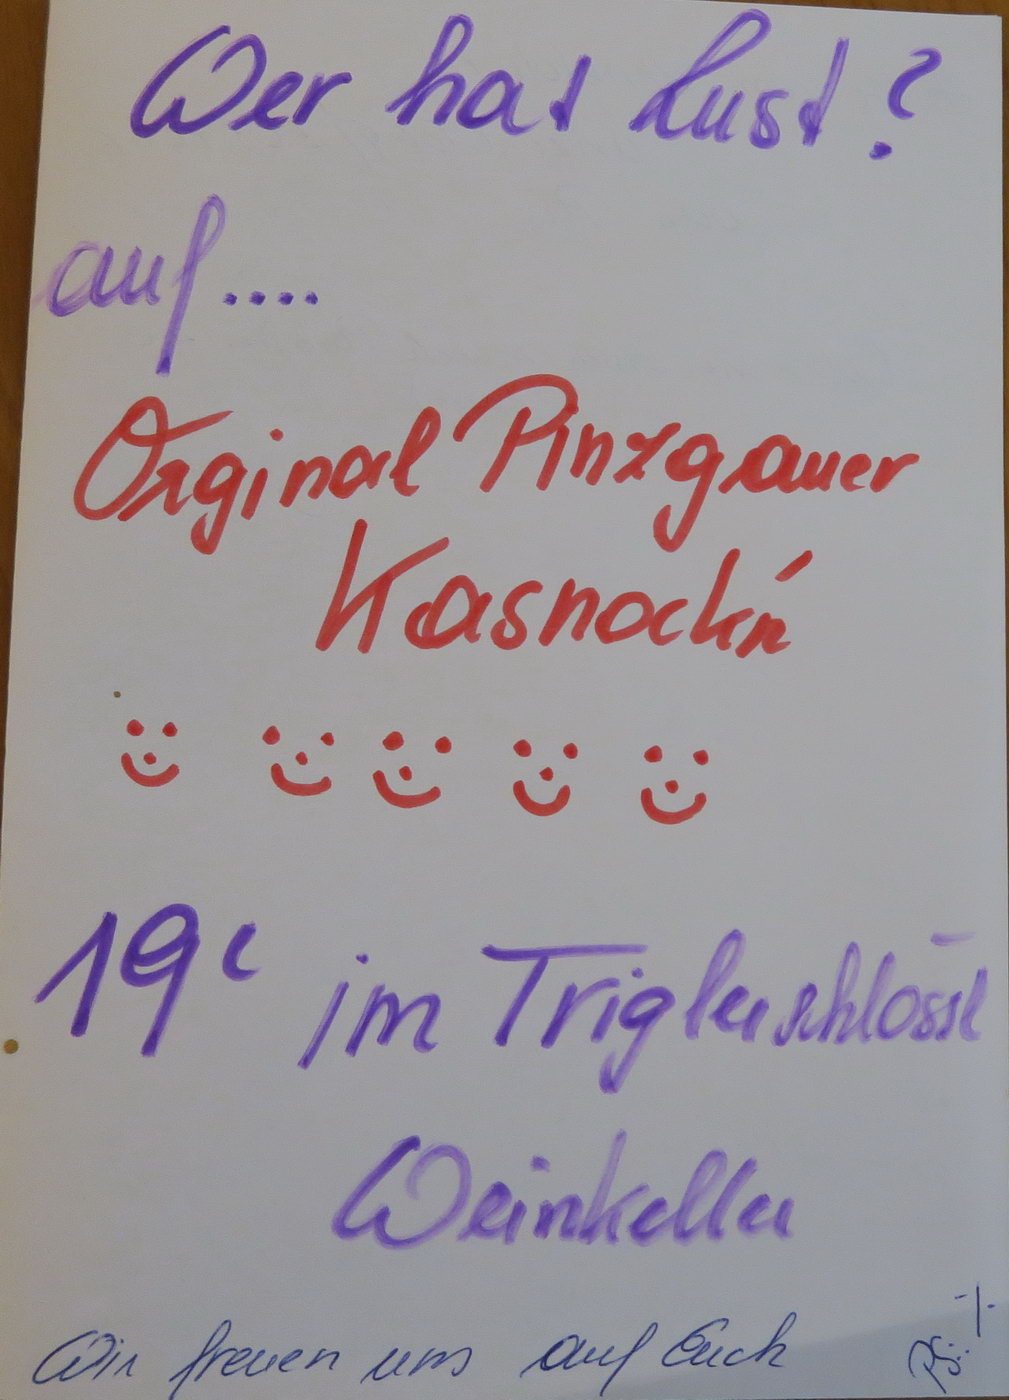 Wer hat Lust?
auf....
Orginal Pinzgauer
Kasnock'n
19c im Triglerschlössl
Weinkeller
Wir freuen uns auf Euch